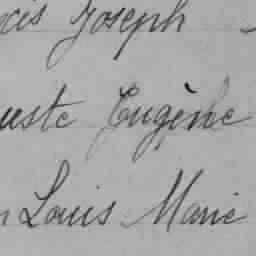 cis Joseph
uste Eugène
n Louis Marie